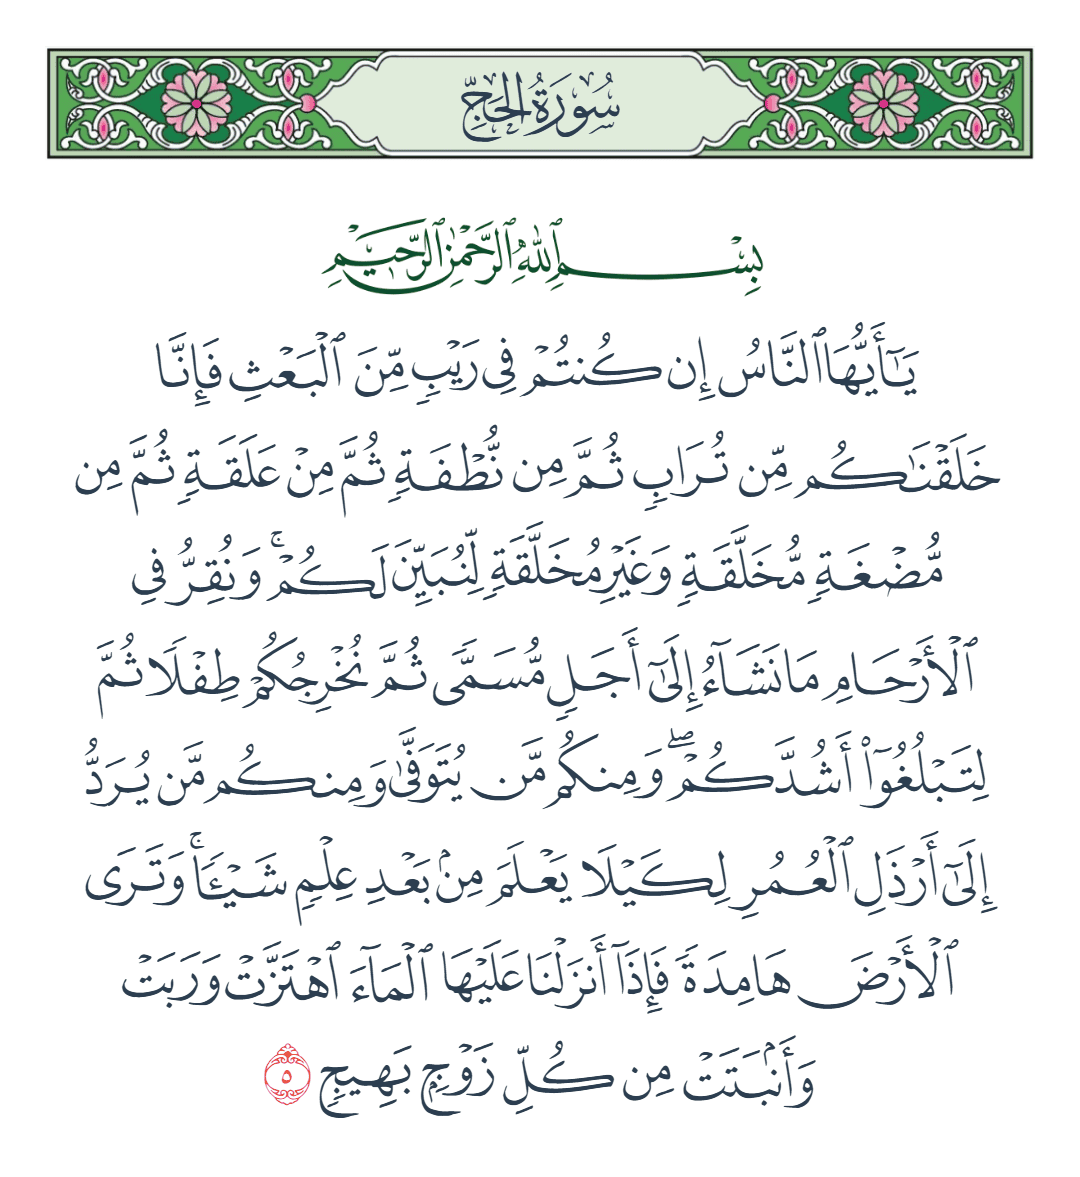 سُورَةُ الحَجِّ
بِسْمِ ٱللَّهِ ٱلرَّحْمَٰنِ ٱلرَّحِيمِ
يَٰٓأَيُّهَا ٱلنَّاسُ إِن كُنتُمْ فِى رَيْبٍ مِّنَ ٱلْبَعْثِ فَإِنَّا
خَلَقْنَٰكُم مِّن تُرَابٍ ثُمَّ مِن نُّطْفَةٍ ثُمَّ مِنْ عَلَقَةٍ ثُمَّ مِن
مُّضْغَةٍ مُّخَلَّقَةٍ وَغَيْرِ مُخَلَّقَةٍ لِّنُبَيِّنَ لَكُمْ ۚ وَنُقِرُّ فِى
ٱلْأَرْحَامِ مَا نَشَآءُ إِلَىٰٓ أَجَلٍ مُّسَمًّى ثُمَّ نُخْرِجُكُمْ طِفْلًا ثُمَّ
لِتَبْلُغُوٓا۟ أَشُدَّكُمْ ۖ وَمِنكُم مَّن يُتَوَفَّىٰ وَمِنكُم مَّن يُرَدُّ
إِلَىٰٓ أَرْذَلِ ٱلْعُمُرِ لِكَيْلَا يَعْلَمَ مِنۢ بَعْدِ عِلْمٍ شَيْـًٔا ۚ وَتَرَى
ٱلْأَرْضَ هَامِدَةً فَإِذَآ أَنزَلْنَا عَلَيْهَا ٱلْمَآءَ ٱهْتَزَّتْ وَرَبَتْ
وَأَنۢبَتَتْ مِن كُلِّ زَوْجٍۭ بَهِيجٍ ٥